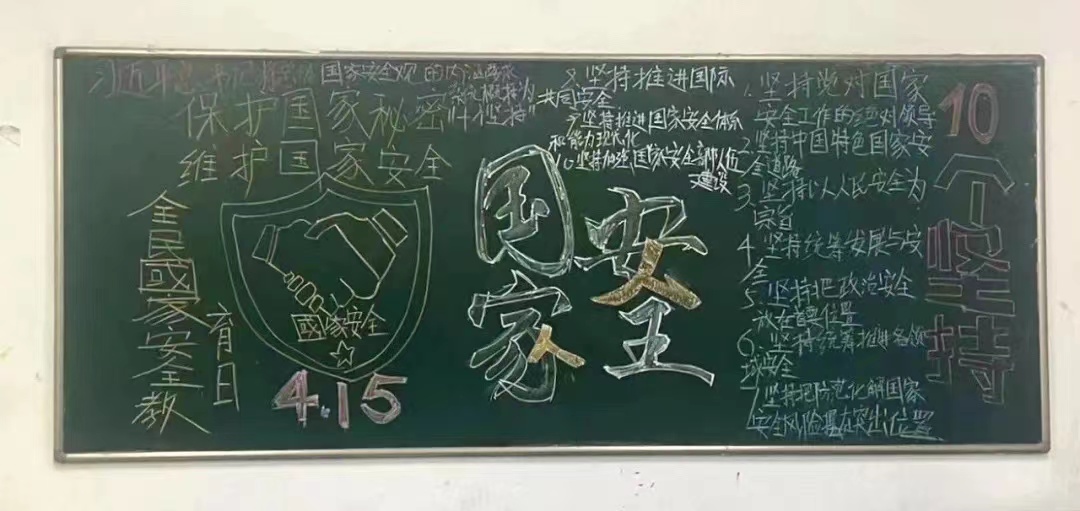 习近平总书记 国家安全观的内涵要求
保护国家秘密
维护国家安全
全民國家安全教
育日
國家安全
4.15
国家
安全
8、坚持推进国际
共同安全
9、坚持推进国家安全体系
和能力现代化
10、坚持加强国家安全部队伍
建设
1、坚持党对国家
安全工作的绝对领导
2、坚持中国特色国家安
全道路
3、坚持以人民安全为
宗旨
4、坚持统筹发展与安
全
5、坚持把政治安全
放在首要位置
6、坚持统筹推进各领
域安全
7、坚持把防范化解国家
安全风险摆在突出位置
10个坚持